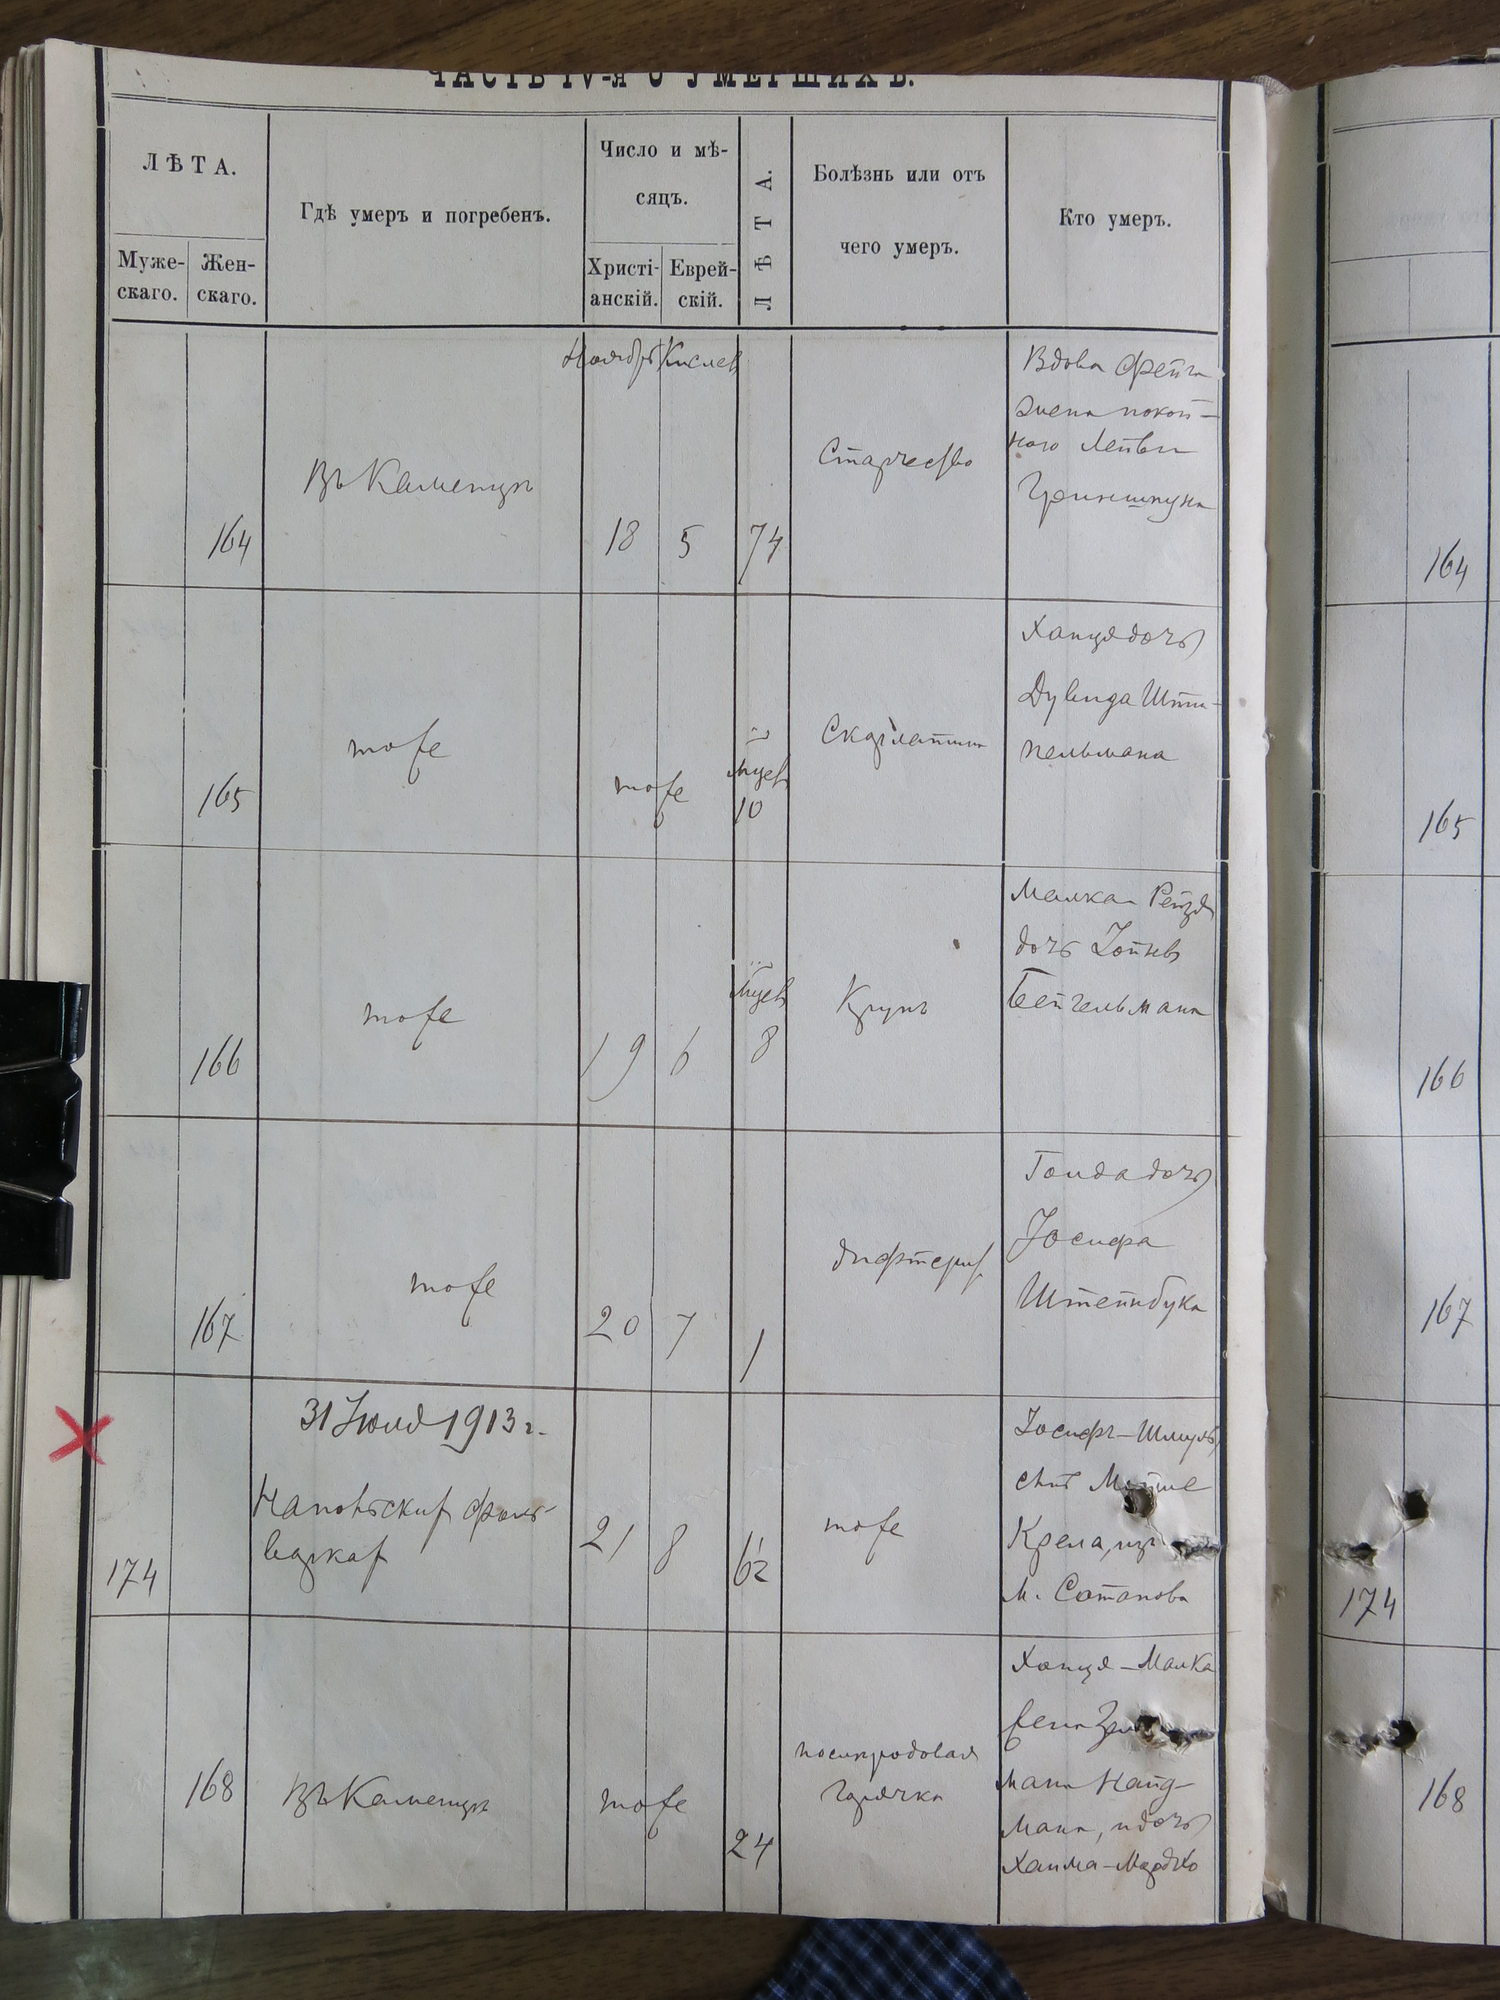 ЧАСТЬ IV-я О УМЕРШИХЪ.
ЛѢТА.
Муже-
скаго.
Жен-
скаго.
Гдѣ умеръ и погребенъ.
Число и мѣ-
сяцъ.
Христі-
анскій.
Еврей-
скій.
ЛѢТА.
Болѣзнь или отъ
чего умеръ.
Кто умеръ.
Ноябрь Кислев
164
Въ Каменцѣ
18 5 74
Старчество
Вдова Фейга
жена покой-
наго Лейвы
Гриншпуна
164
165
тоже
тоже
мцев
10
Скарлатина
Ханця дочь
Дувида Шти-
пельмана
165
166
тоже
19 6
мцев
8
Крупъ
Малка Рейзя
дочь Іойнъ
Бейгельмана
166
167
тоже
20 7 1
дифтерит
Голда дочь
Іосифа
Штейнбука
167
31 Іюля 1913 г.
174
фоль-
варках
21 8
тоже
Іосифъ-Шмуль
сынъ
Крела, изъ
м. Сатанова
174
168
Въ Каменцѣ
тоже
24
послеродовая
горячка
Ханця-Малка
жена
мана Найд-
мана, и дочь
Хаима-Мордко
168